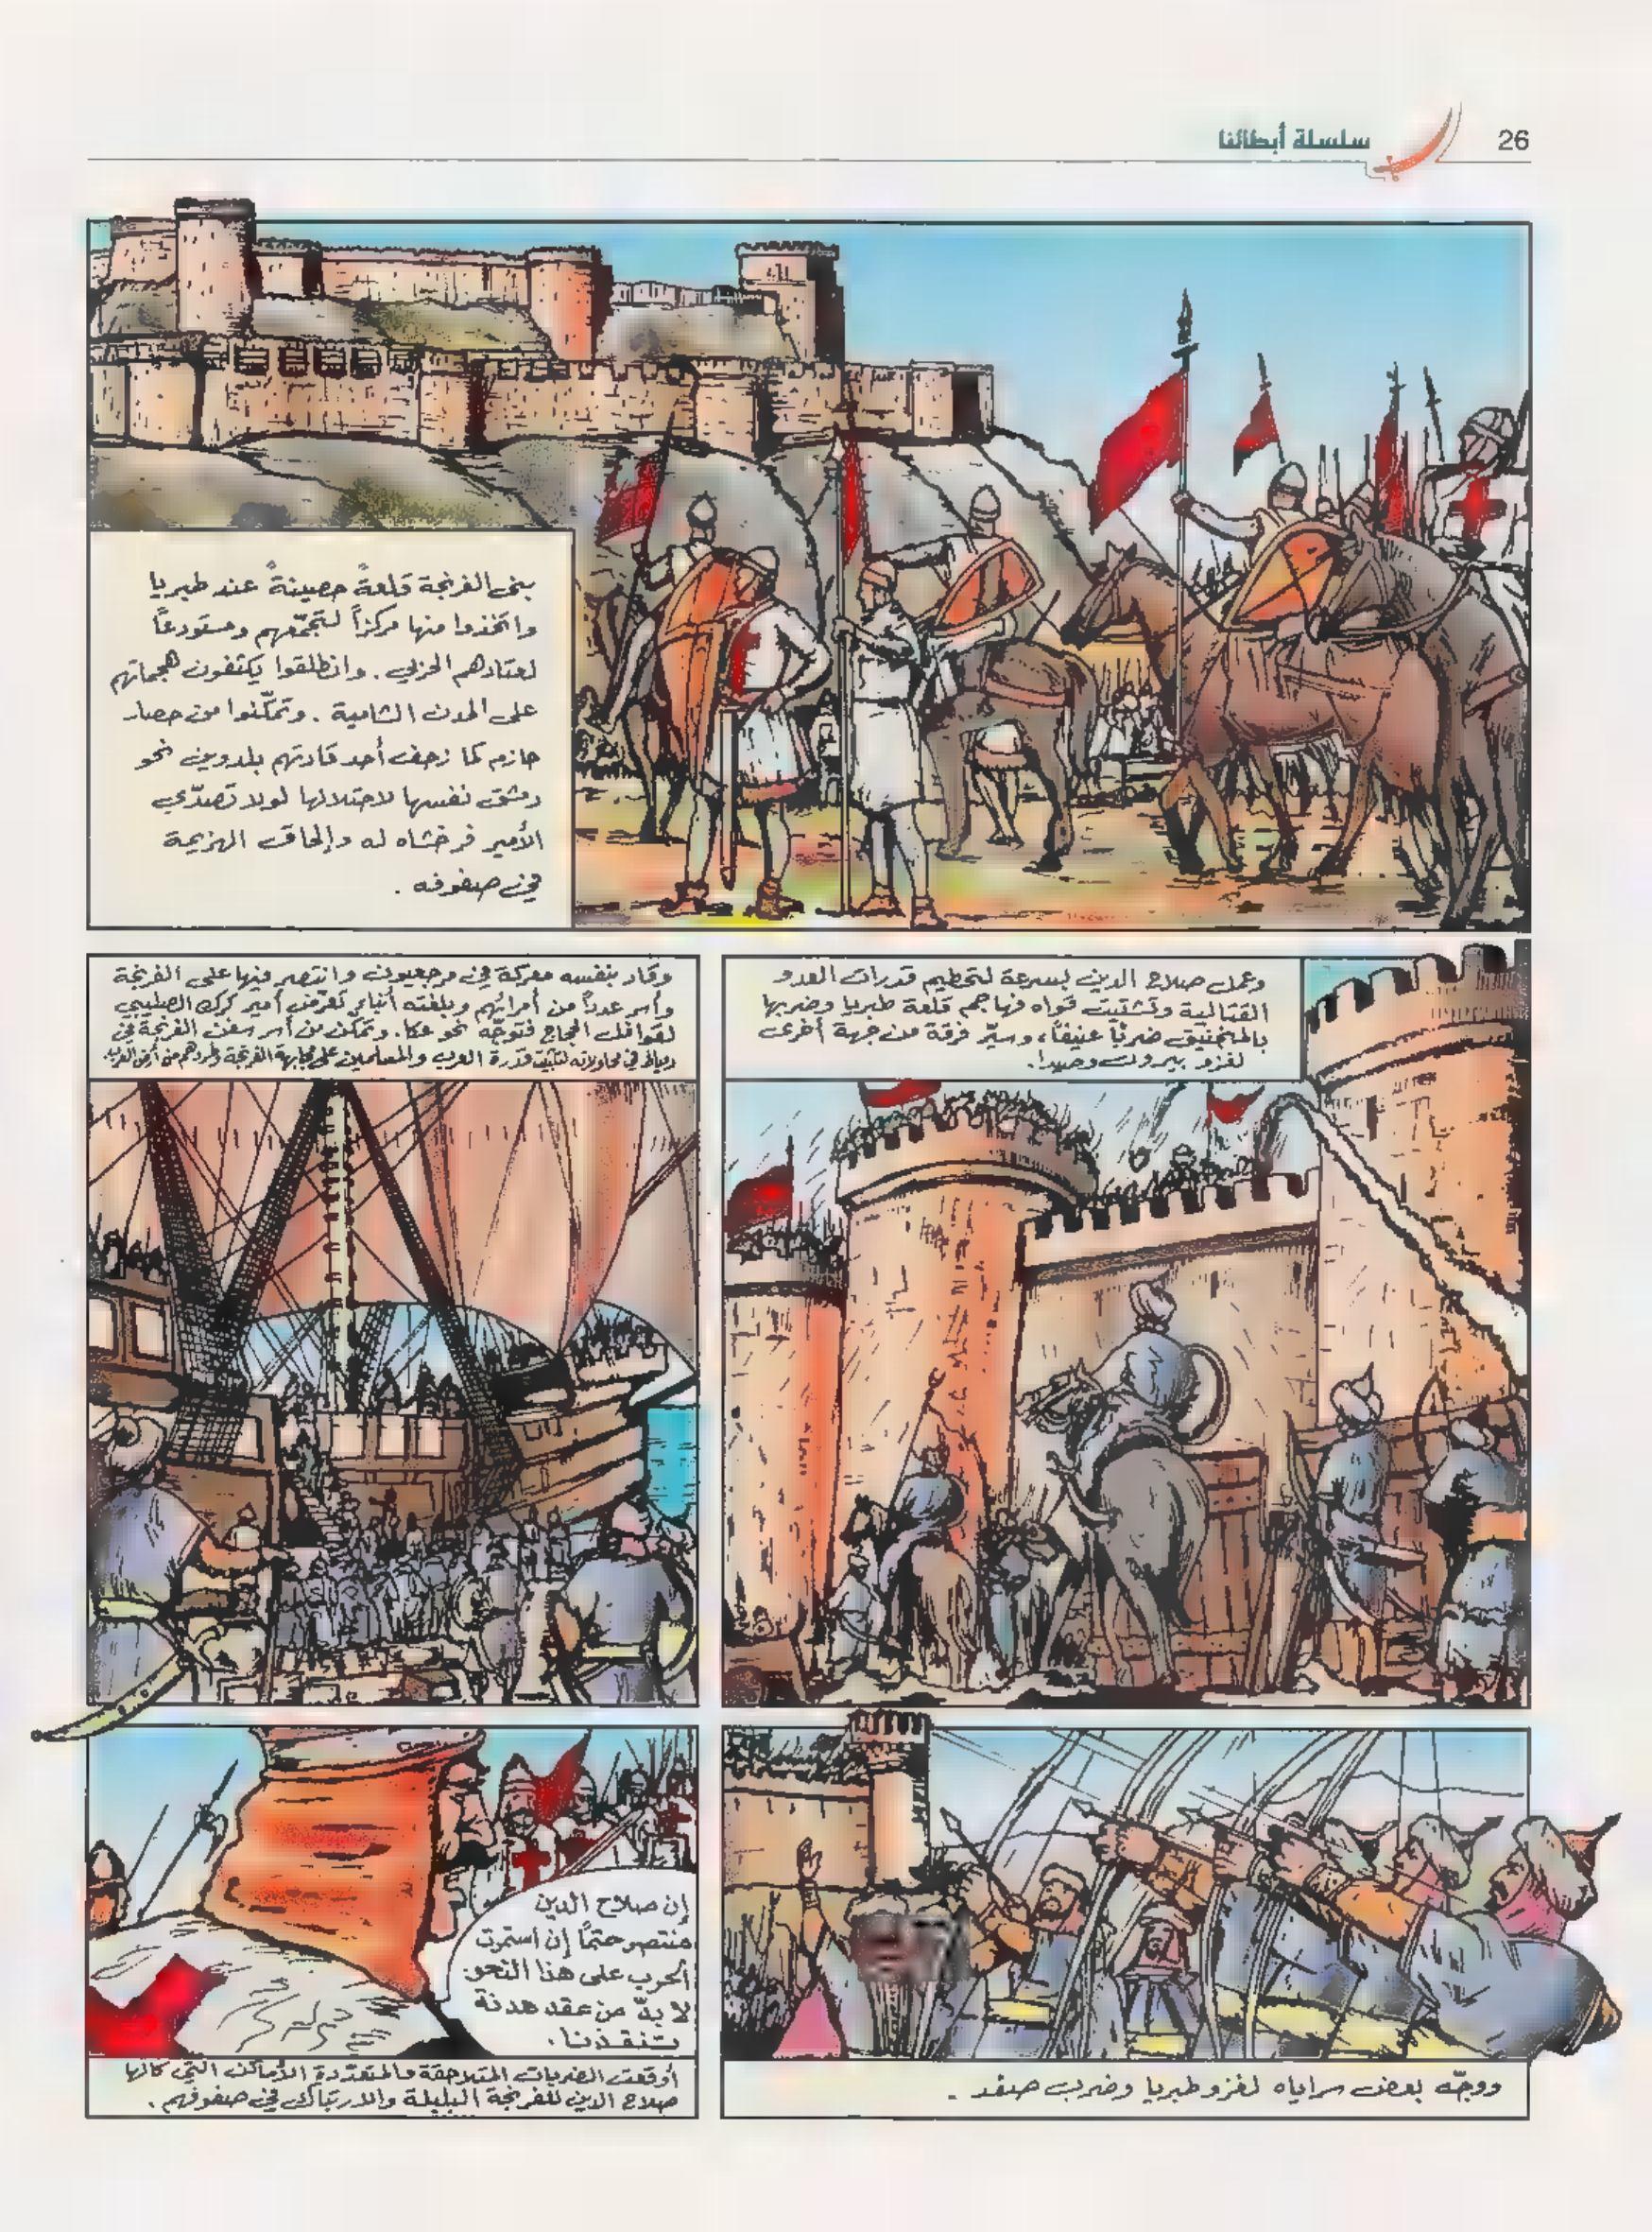 26
سلسلة أبطالنا
بنى الفرنجة قلعةً حصينةً عند طبريا
واتخذوا منها مركزاً لتجمّعهم ومستودعاً
لعتادهم الحربي. وانطلقوا يكثفون هجماتهم
على المدن الشامية. وتمكّنوا من حصار
حازم كما زحف أحد قادتهم بلدوين نحو
دمشق نفسها لاحتلالها لولا تصدّي
الأمير فرخشاه له وإلحاق الهزيمة
في صفوفه.
وعمل صلاح الدين بسرعة لتحطيم قدرات العدو
القتالية وتشتيت قواه فهاجم قلعة طبريا وضربها
بالمنجنيق ضرباً عنيفاً، وسيّر فرقة من جهة أخرى
لغزو بيروت وصيدا.
وقاد بنفسه معركة في مرجعيون وانتصر فيها على الفرنجة
وأسر عدداً من أمرائهم وبلغته أنباء تعرّض أمير كرك الصليبي
لقوافل الحجاج فتوجّه نحو عكا. وتمكن من أسر سفن الفرنجة في
في محاولاته لتثبيت قدرة العرب والمسلمين على مجابهة الفرنجة وطردهم من أرض العرب.
ووجّه بعض سراياه لغزو طبريا وضرب صفد.
إن صلاح الدين
منتصر حتماً إن استمرت
الحرب على هذا النحو.
لا بدّ من عقد هدنة
تنقذنا.
أوقعت الضربات المتلاحقة والمتعدّدة الأماكن التي كالها
صلاح الدين للفرنجة البلبلة والارتباك في صفوفهم.